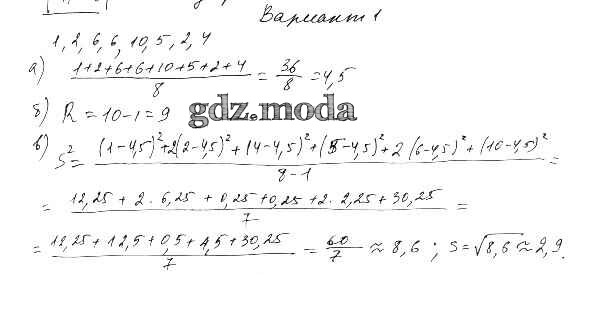 Вариант 1
1, 2, 6, 6, 10, 5, 2, 4
а) (1+2+6+6+10+5+2+4)/8 = 36/8 = 4,5
б) R = 10-1 = 9
gdz.moda
в) S² = ((1-4,5)²+2(2-4,5)²+(4-4,5)²+(5-4,5)²+2(6-4,5)²+(10-4,5)²)/(8-1) =
= (12,25 + 2·6,25 + 0,25+0,25+2·2,25+30,25)/7 =
= (12,25+12,5+0,5+4,5+30,25)/7 = 60/7 ≈ 8,6 ; S=√8,6 ≈ 2,9.